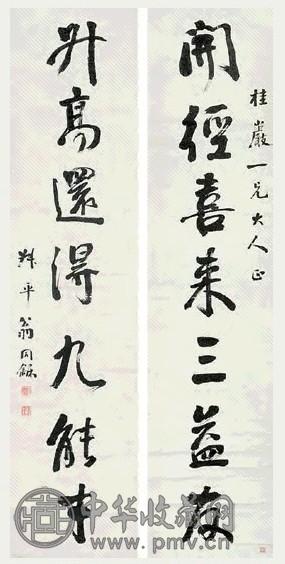 桂巖一兄大人正
開徑喜来三益友
升高還得九能才
叔平翁同龢
中华收藏网
www.pmv.cn